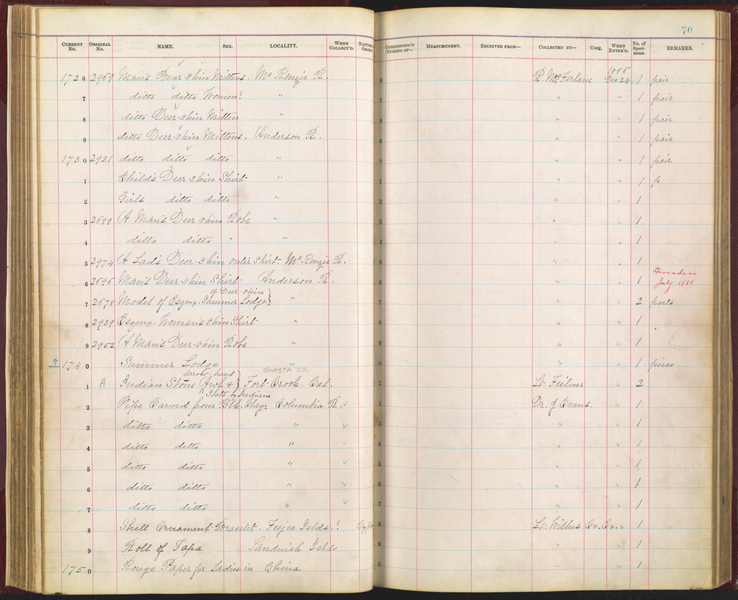 70
CURRENT No. ORIGINAL No. NAME. SEX. LOCALITY. WHEN COLLECT'D. CORRESPOND'G NUMBER OF— MEASUREMENT. RECEIVED FROM— COLLECTED BY— WHEN ENTER'D. No. of Speci- mens. REMARKS.
1866
1726 Man's skin Mittens. McKenzie R. R. McFarlane Dec 24 1 pair
7 ditto ditto Women's " " " 1 pair
8 ditto Deer-skin Mitten " " " 1 pair
9 ditto Deer-skin Mittens. Anderson R. " " 1 pair
1730 2931 ditto ditto ditto " " " 1 pair
1 Child's Deer skin Shirt " " " 1 p
2 Girls ditto ditto " " " 1
3 A Man's Deer skin Robe " " " 1
4 ditto ditto " " " " 1
5 2974 A Lad's Deer-skin outer Shirt- McKenzie R. " " 1
6 2696 Man's Deer skin Shirt Anderson R. " " 1 July
of Deer-skin
7 2678 Model of Esqmx. Summer Lodge} " " " 2 parts
8 Esqmx. Woman's skin Shirt " " " 1 "
9 A Man's Deer-skin Robe " " " 1
1740 Summer Lodge " " " 1 piece
arrow head
1 A Indian Stone Awl & } Fort Crook Cal. Lt. Feilner " 2
by Indians
2 Pipe Carved from Blk. Slayr Columbia R. Dr. J. Evans. " 1
3 ditto ditto " " " 1
4 ditto ditto " " " 1
5 ditto ditto " " " 1
6 ditto ditto " " " 1
7 ditto ditto " " " 1
8 Shell Ornament Bracelet. Feejee Islds. Lt. Wilkes Ex. Ex. " 1
9 Roll of Tapa Sandwich Islds " " 1
1750 Rouge Paper for Ladies in China " " 1